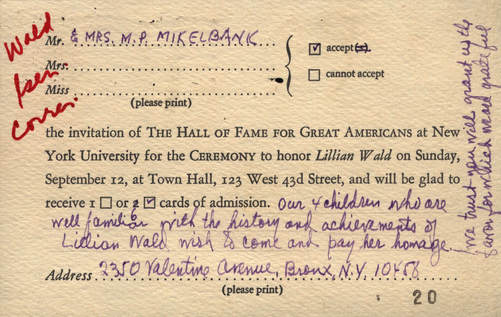 Wald
Isen
Corres.
Mr. & MRS. M.P. MIKELBANK
Mrs.
Miss
(please print)
accept(s)
cannot accept
the invitation of THE HALL OF FAME FOR GREAT AMERICANS at New
York University for the CEREMONY to honor Lillian Wald on Sunday,
September 12, at Town Hall, 123 West 43d Street, and will be glad to
receive 1 or 2 cards of admission. Our 4 children who are
6
well familiar with the history and achievements of
Lillian Wald wish to come and pay her homage.
Address 2350 Valentine Avenue, Bronx, N.Y. 10458
(please print)
20
We trust you will grant us the
favor for which we are grateful